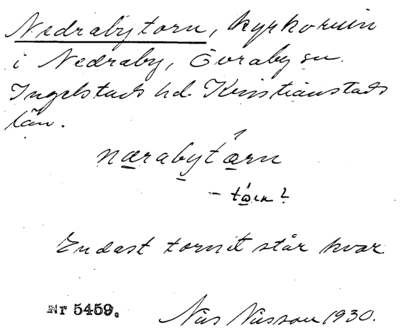 Nedrabytorn, kyrkoruin
i Nedraby, Övraby sn.
Ingelstads hd. Kristianstads
län.
nærabytærn
– tærn?
Endast tornet står kvar
Nr 5459. Nils Nilsson 1930.